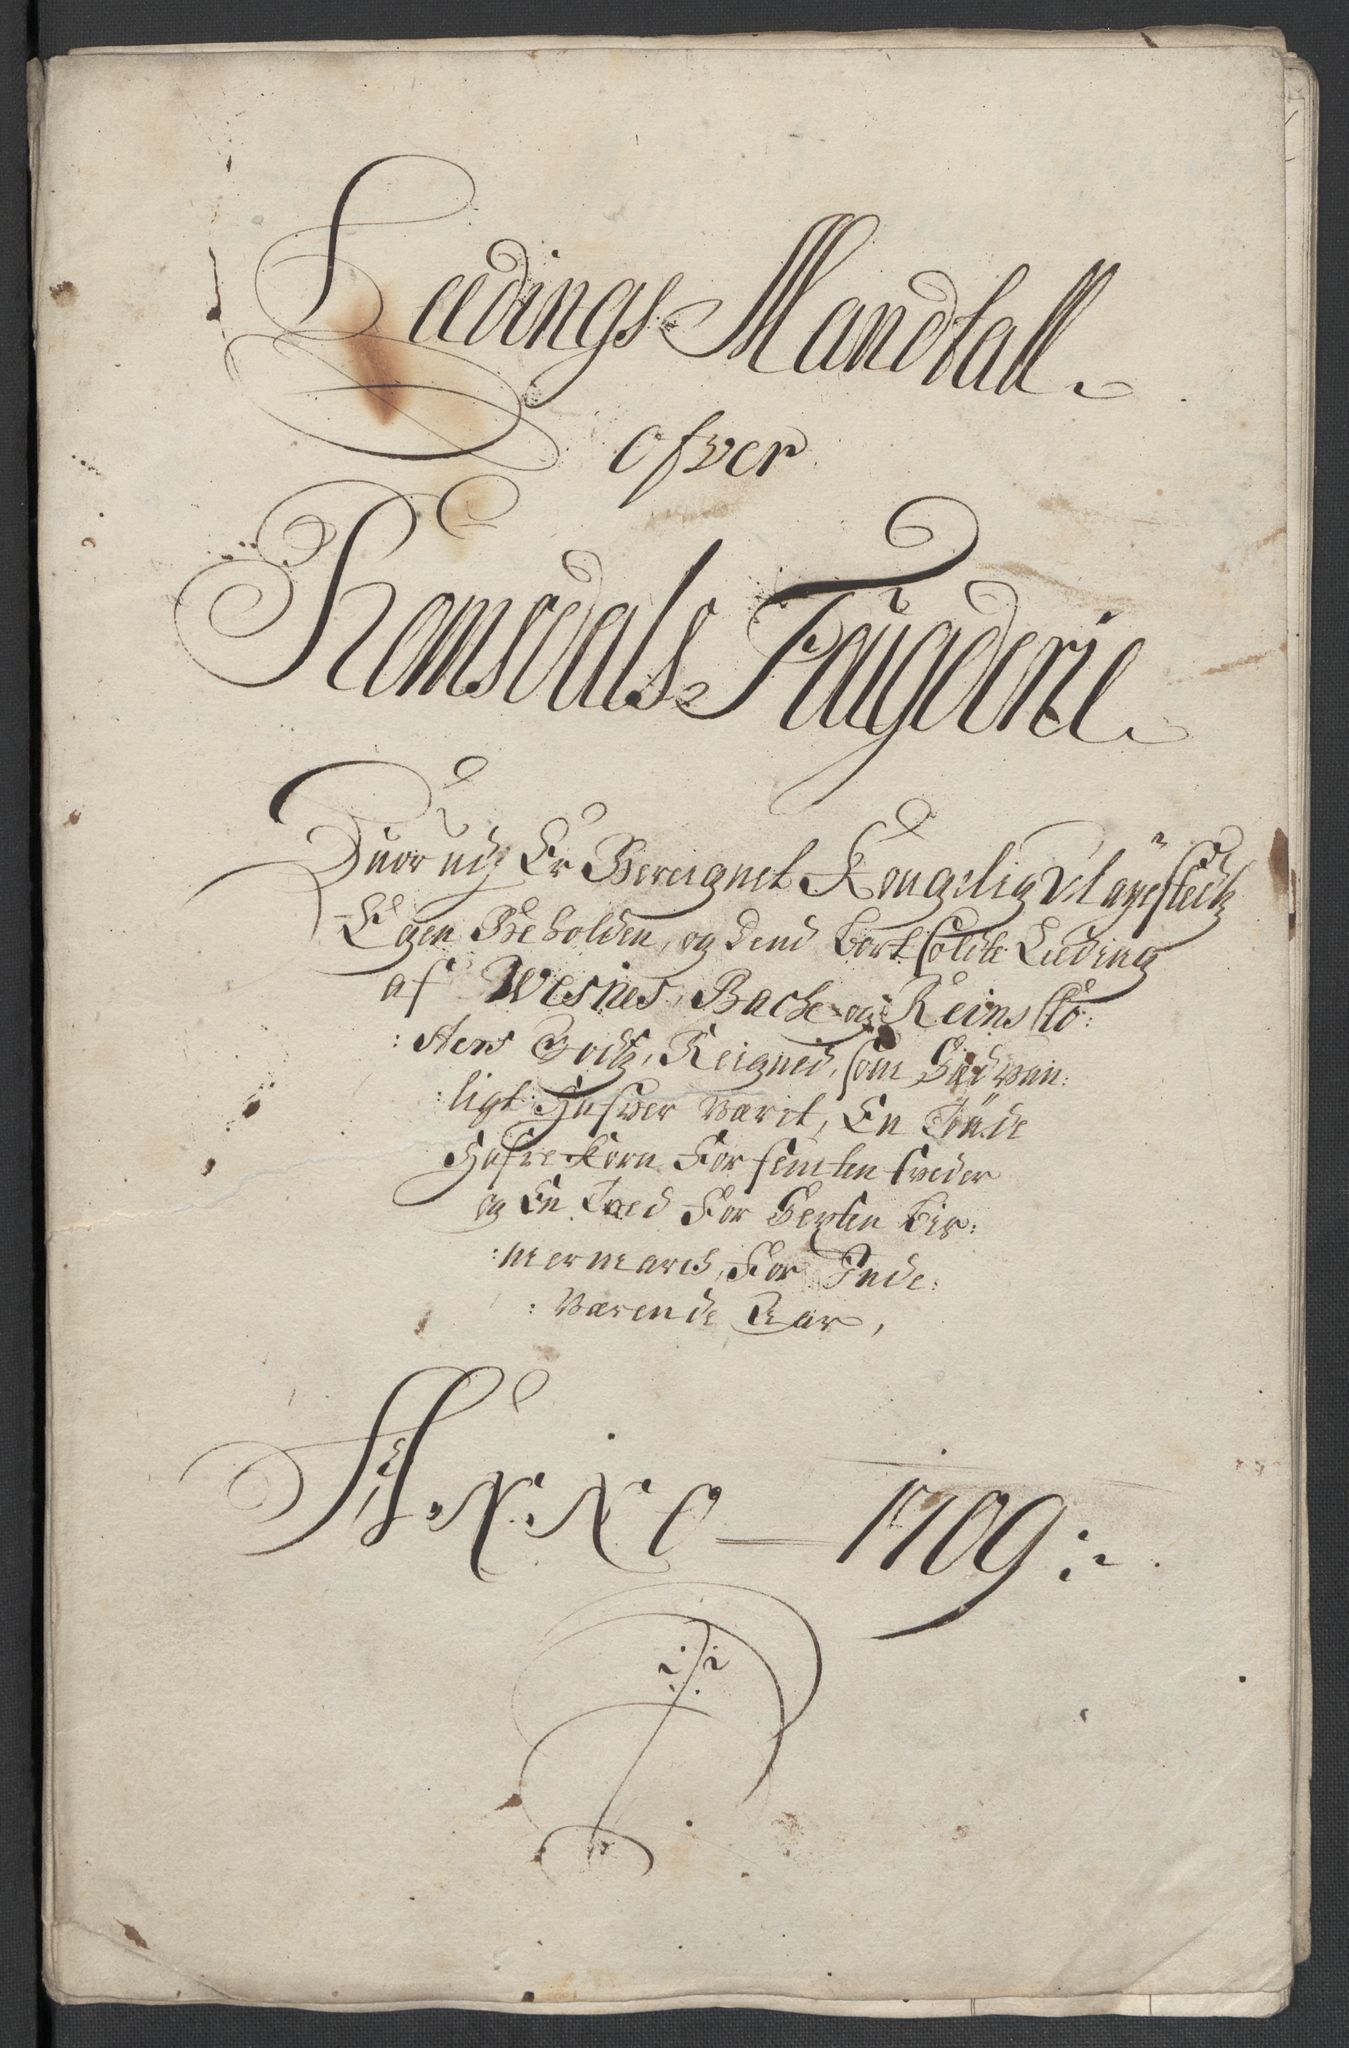 Leedings Mandtall
ofver
Romsdals Faugderie
Huorudj Er Bereignet Kongelig Mayestetz
Egen Beholden, og dend bortsoldte Leeding
af Wesnes, Bache og Reinsklo:
:sters Godtz, Reignid, som Sædvan:
:ligt Hafver Værit, En Tønde
Hafre Korn For femten Sveder
og En Sved For Sexten Bis:
:mermarch, For Inde:
:Værende Aar,
ANNO — 1709: